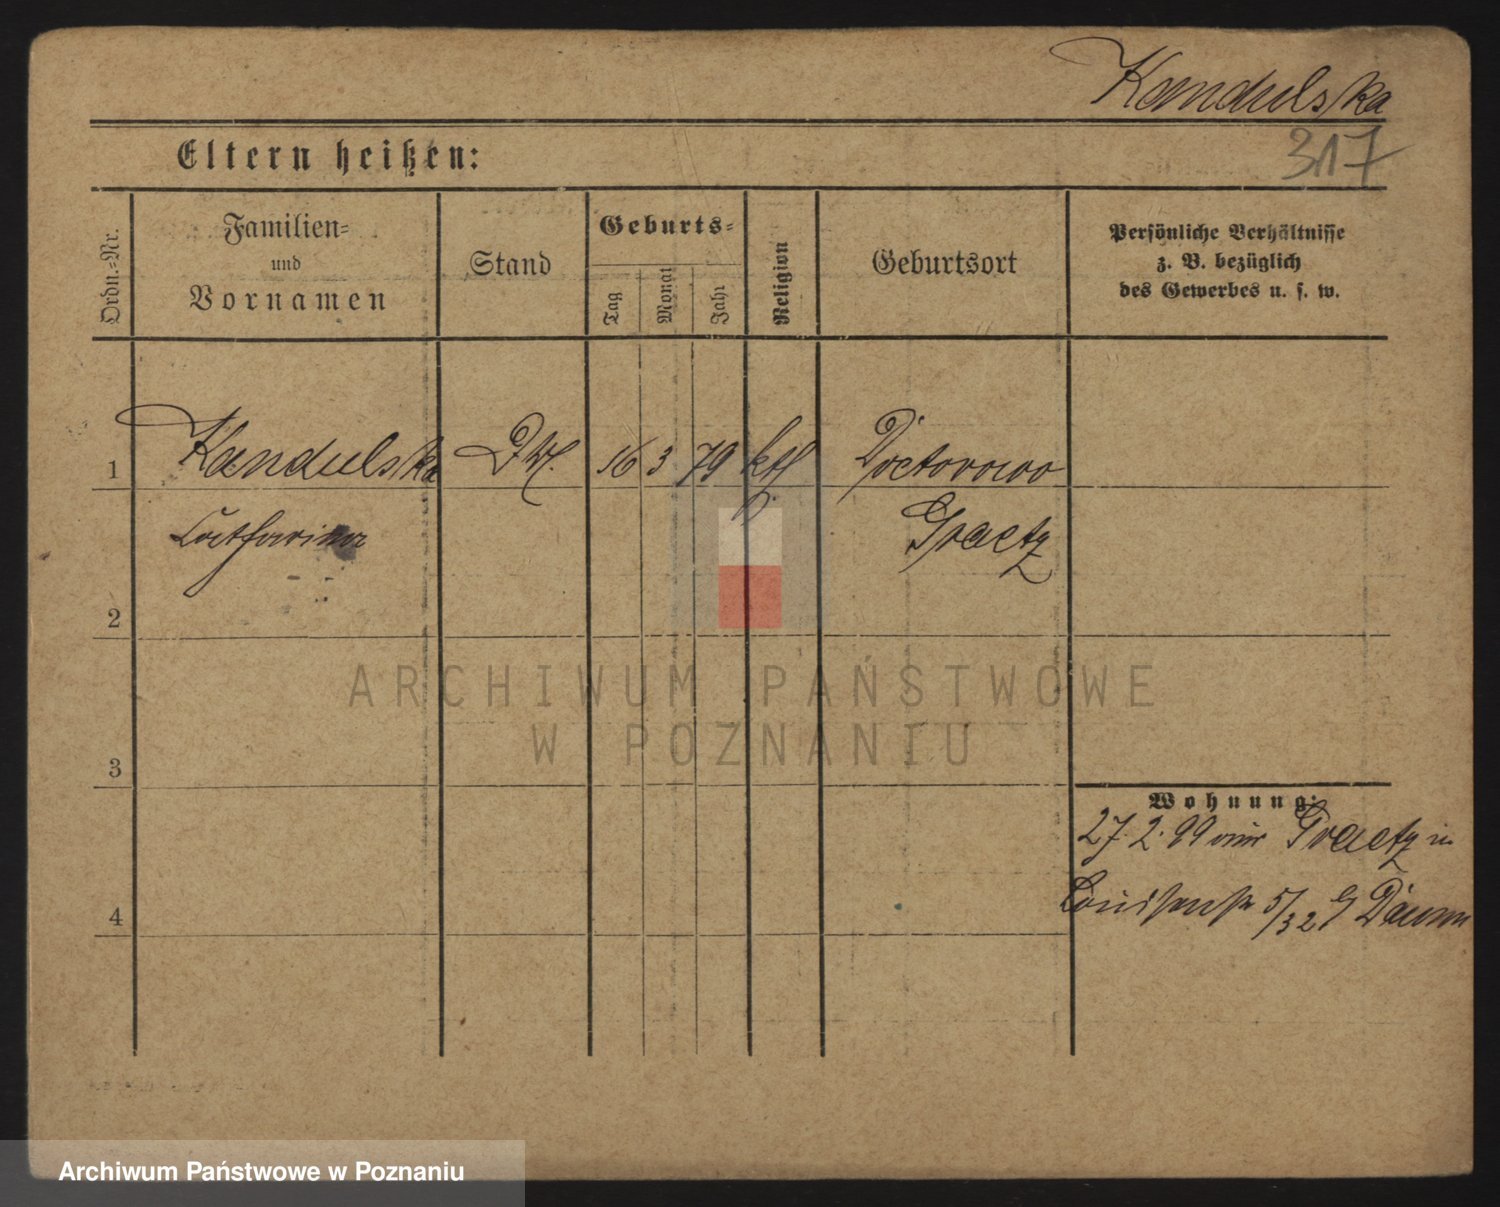 Kandulska
317
Eltern heißen:
Ordn.-Nr.
Familien-
und
Vornamen
Stand
Geburts-
Tag
Monat
Jahr
Religion
Geburtsort
Persönliche Verhältnisse
z. B. bezüglich
des Gewerbes u. s. w.
1 Kandulska 16 3 79 kth Doctorowo
Catharina Graetz
2
3
4
Wohnung:
27. 2. 99 Graetz in
5/32
ARCHIWUM PAŃSTWOWE
W POZNANIU
Archiwum Państwowe w Poznaniu